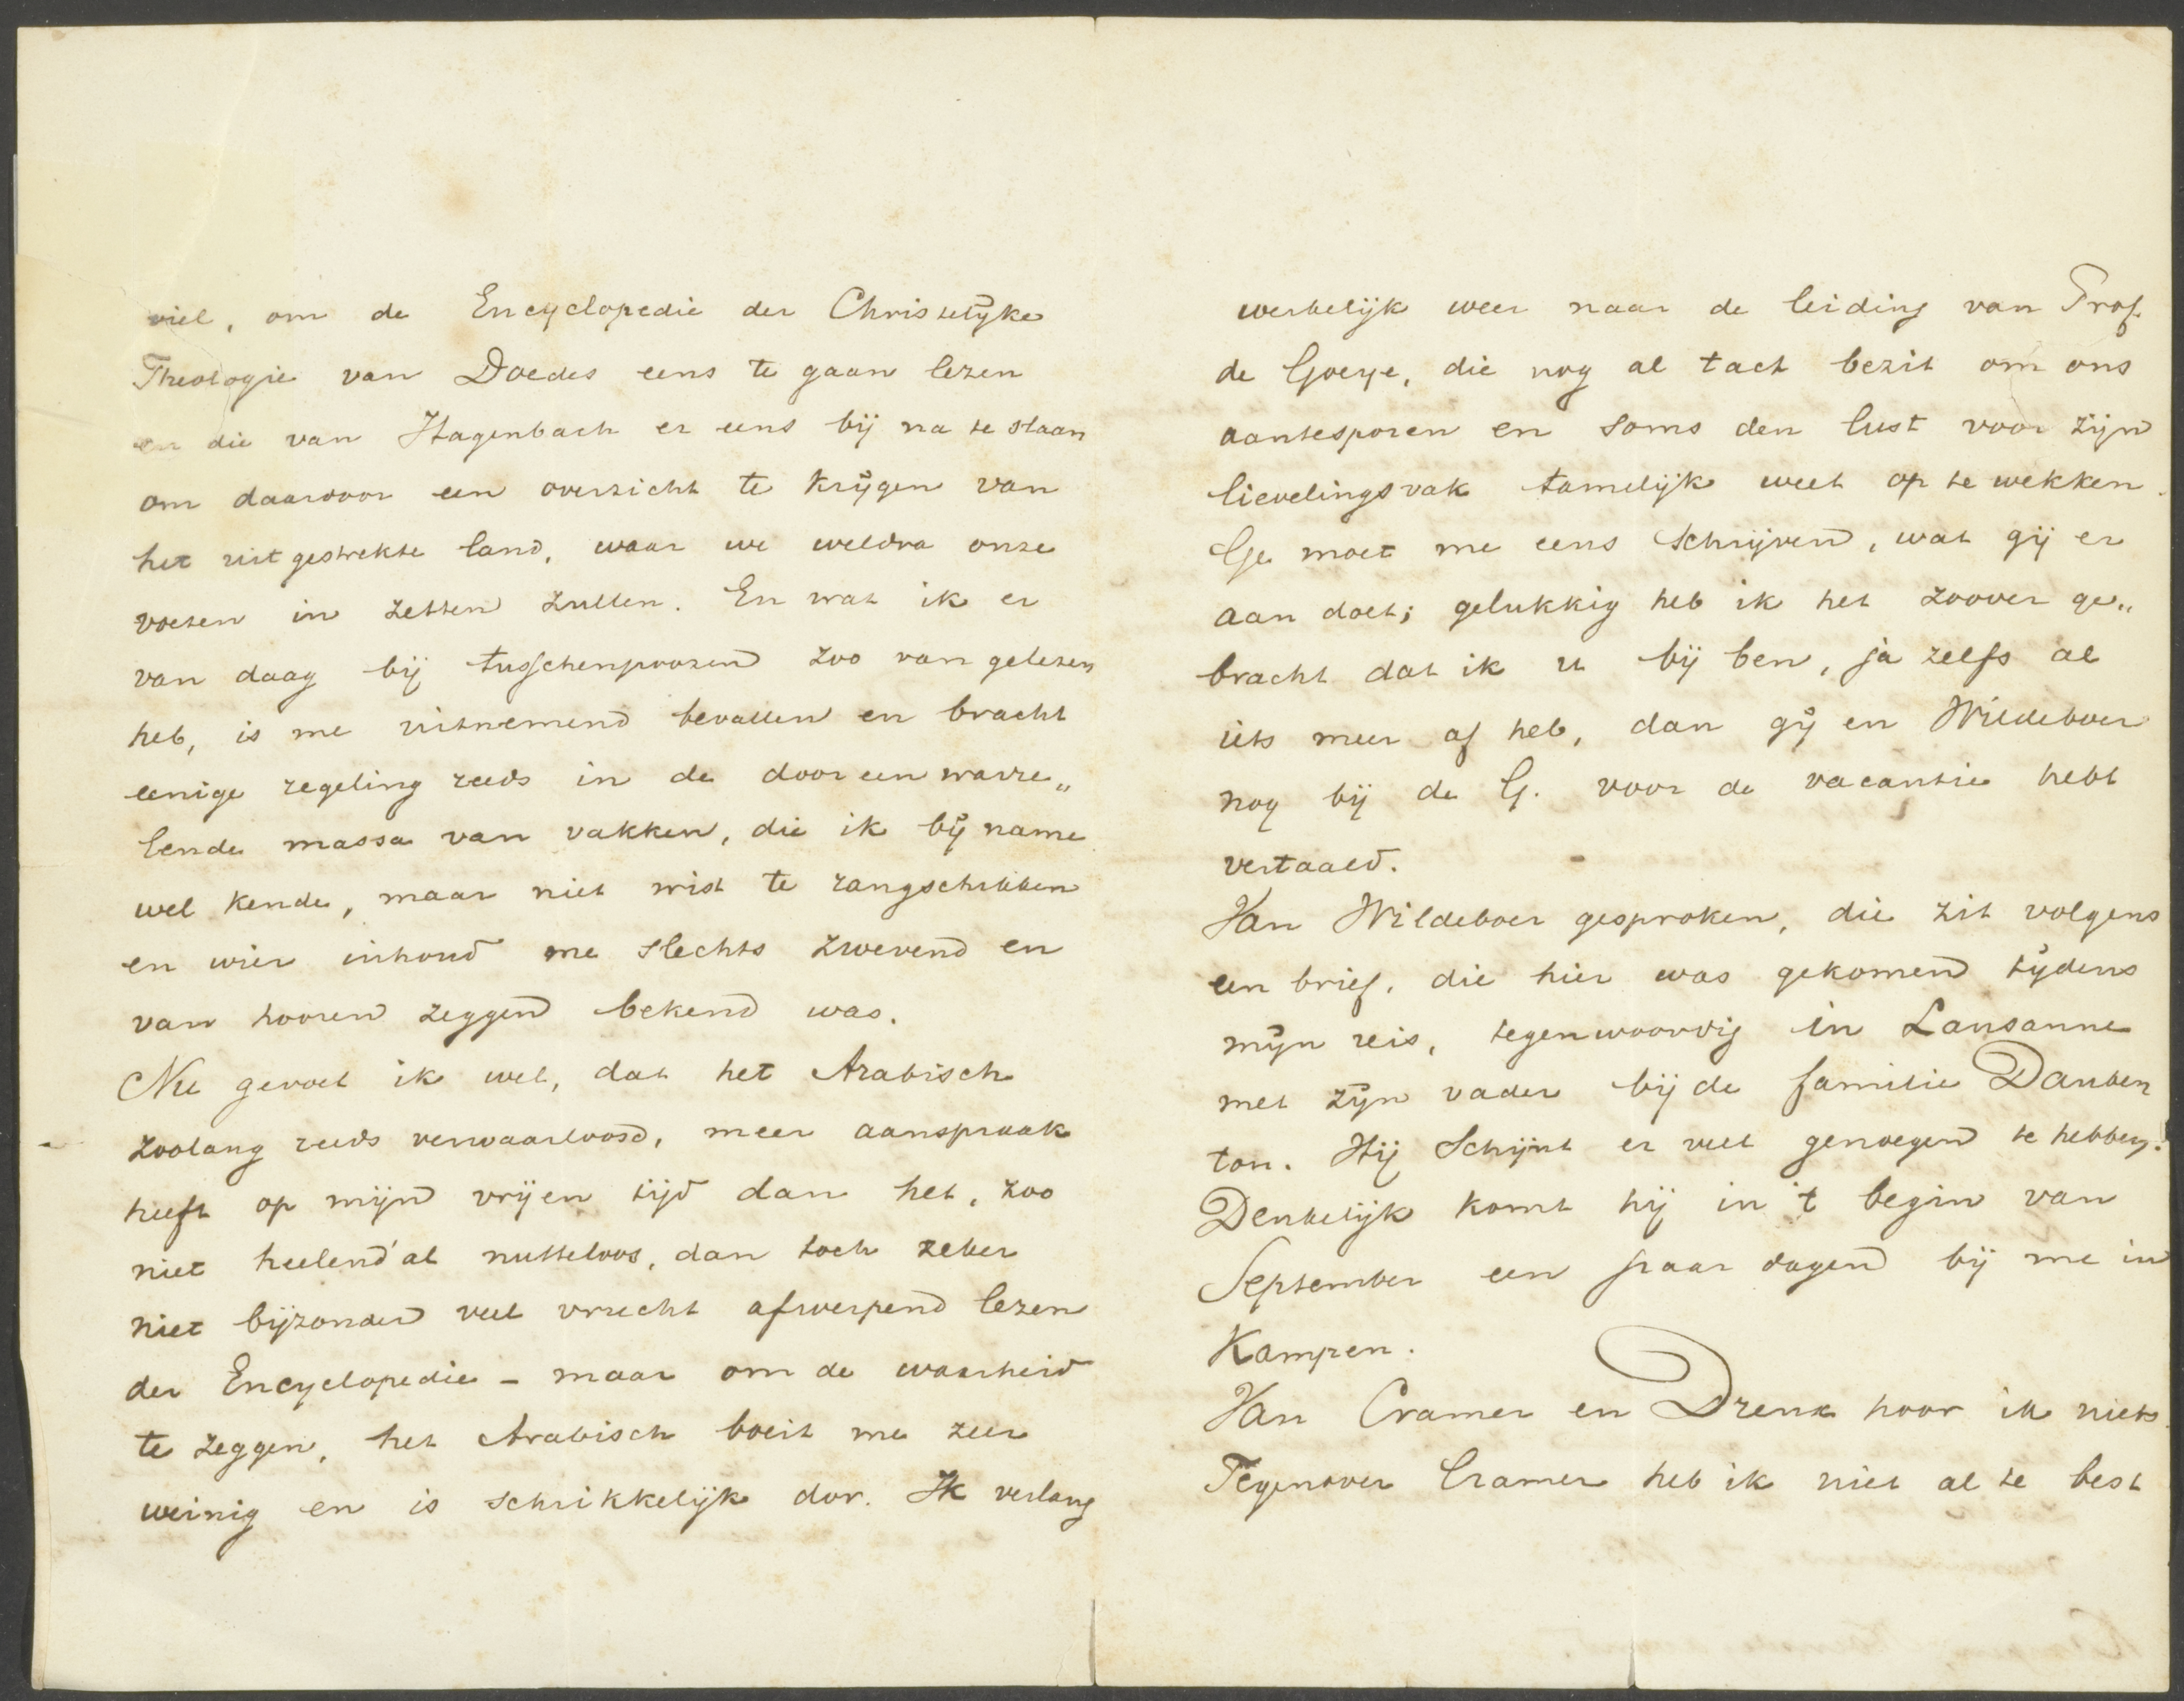 viel, om de Encyclopedie der Christelijke
Theologie van Doedes eens te gaan lezen
en die van Hagenbach er eens bij na te slaan
om daarvoor een overzicht te krijgen van
het uitgestrekte land, waar we weldra onze
voeten in zetten zullen. En wat ik er
van daag bij tusschenpoozen zoo van gelezen
heb, is me uitnemend bevallen en bracht
eenige regeling reeds in de dooreenwarre„
lende massa van vakken, die ik bij name
wel kende, maar niet wist te rangschikken
en wier inhoud me slechts zwevend en
van hooren zeggen bekend was.
Nu gevoel ik wel, dat het Arabisch
zoolang reeds verwaarloosd, meer aanspraak
heeft op mijn vrijen tijd dan het, zoo
niet heelend'al nutteloos, dan toch zeker
niet bijzonder veel vrucht afwerpend lezen
der Encyclopedie - maar om de waarheid
te zeggen, het Arabisch boeit me zeer
weinig en is schrikkelijk dor. Ik verlang
werkelijk weer naar de leiding van Prof.
de Goeye, die nog al tact bezit om ons
aantesporen en soms den lust voor zijn
lievelingsvak tamelijk weet op te wekken.
Ge moet me eens schrijven, wat gij er
aan doet; gelukkig heb ik het zoover ge„
bracht dat ik u bij ben, ja zelfs al
iets meer af heb, dan gij en Wildeboer
nog bij de G. voor de vacantie hebt
vertaald.
Van Wildeboer gesproken, die zit volgens
een brief, die hier was gekomen tijdens
mijn reis, tegenwoordig in Lausanne
met zijn vader bij de familie Dauben
ton. Hij schijnt er veel genoegen te hebben.
Denkelijk komt hij in 't begin van
September een paar dagen bij me in
Kampen.
Van Cramer en Drenk hoor ik niets.
Tegenover Cramer heb ik niet al te best